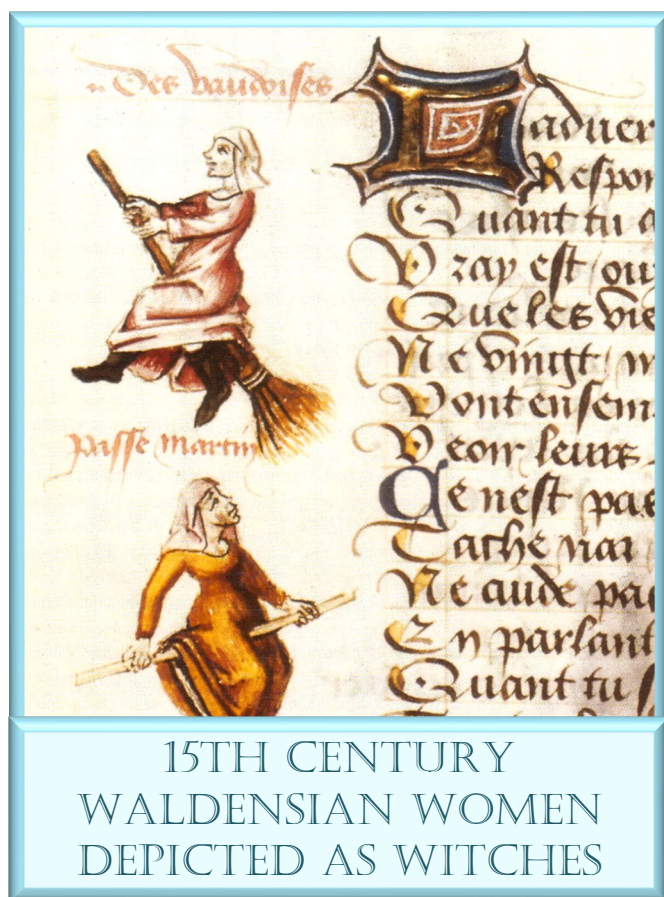 Des vaudoises
passe martin
aduer
Respon
Quant tu a
Vray est ou
Que les vie
Ne vingt
Vont ensem
Veoir leurs
Ce nest pas
Tache
Ne cuide pas
En parlant
Quant tu
15TH CENTURY
WALDENSIAN WOMEN
DEPICTED AS WITCHES